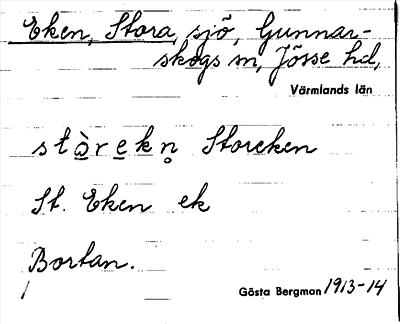 Eken, Stora, sjö, Gunnar-
skogs sn, Jösse hd,
Värmlands län
stò̱re̱kn̥ Storeken
St. Eken ek
Bortan.
Gösta Bergman 1913-14